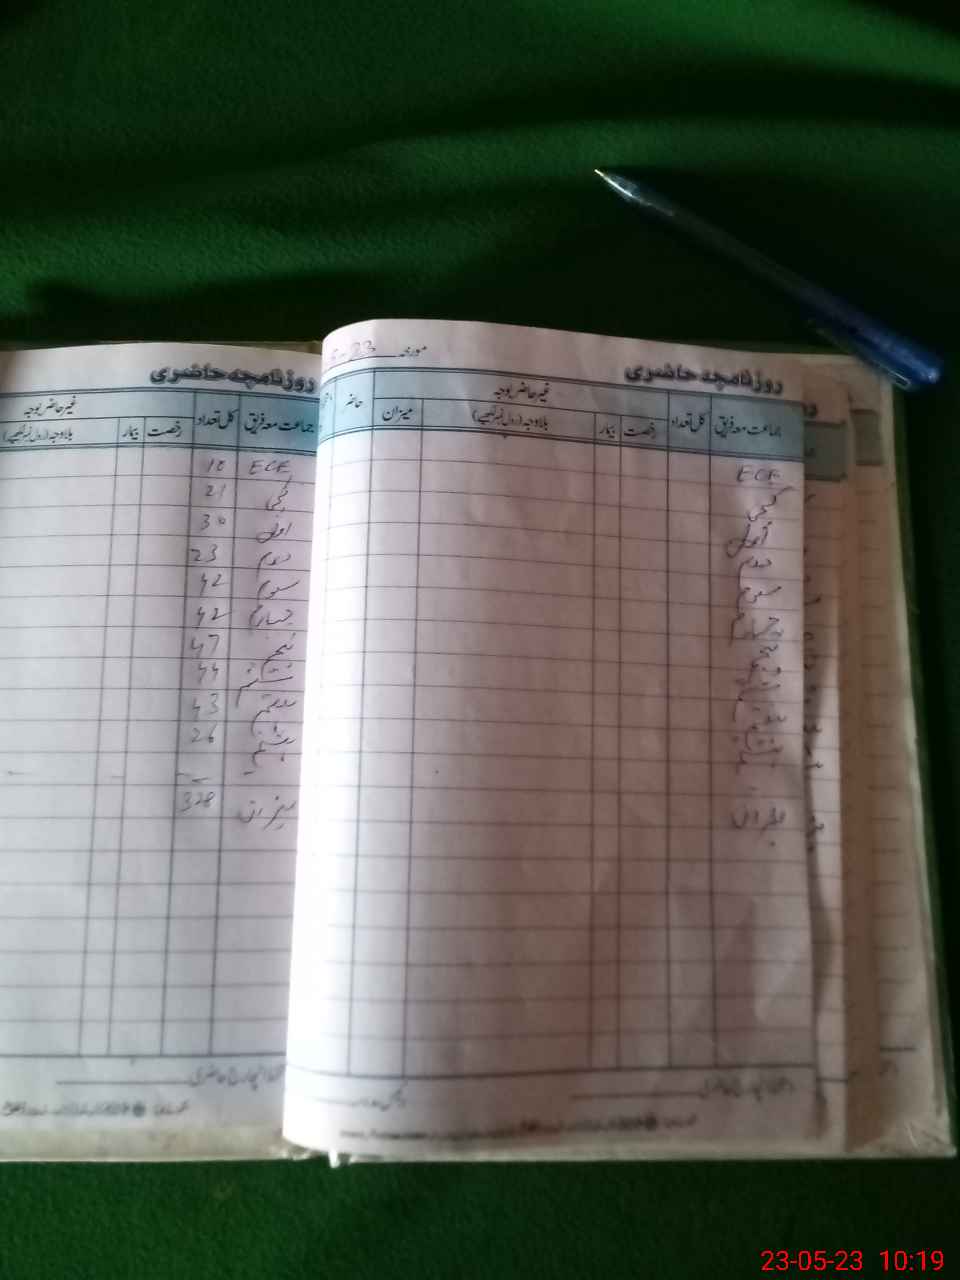 روزنامچہ حاضری
غیر حاضر بوجہ
جماعت معہ فریق کل تعداد رخصت بیمار بلاوجہ (رول نمبر لکھیے)
ECE 10
کچی 21
اول 30
دوم 23
سوم 42
چہارم 42
پنجم 47
ششم 44
ہفتم 43
ہشتم 26
میزان 328
انچارج حاضری
مورخہ
روزنامچہ حاضری
غیر حاضر بوجہ
جماعت معہ فریق کل تعداد رخصت بیمار بلاوجہ (رول نمبر لکھیے) میزان حاضر
ECE
کچی
اول
دوم
سوم
چہارم
پنجم
ششم
ہفتم
ہشتم
میزان
انچارج حاضری
23-05-23 10:19